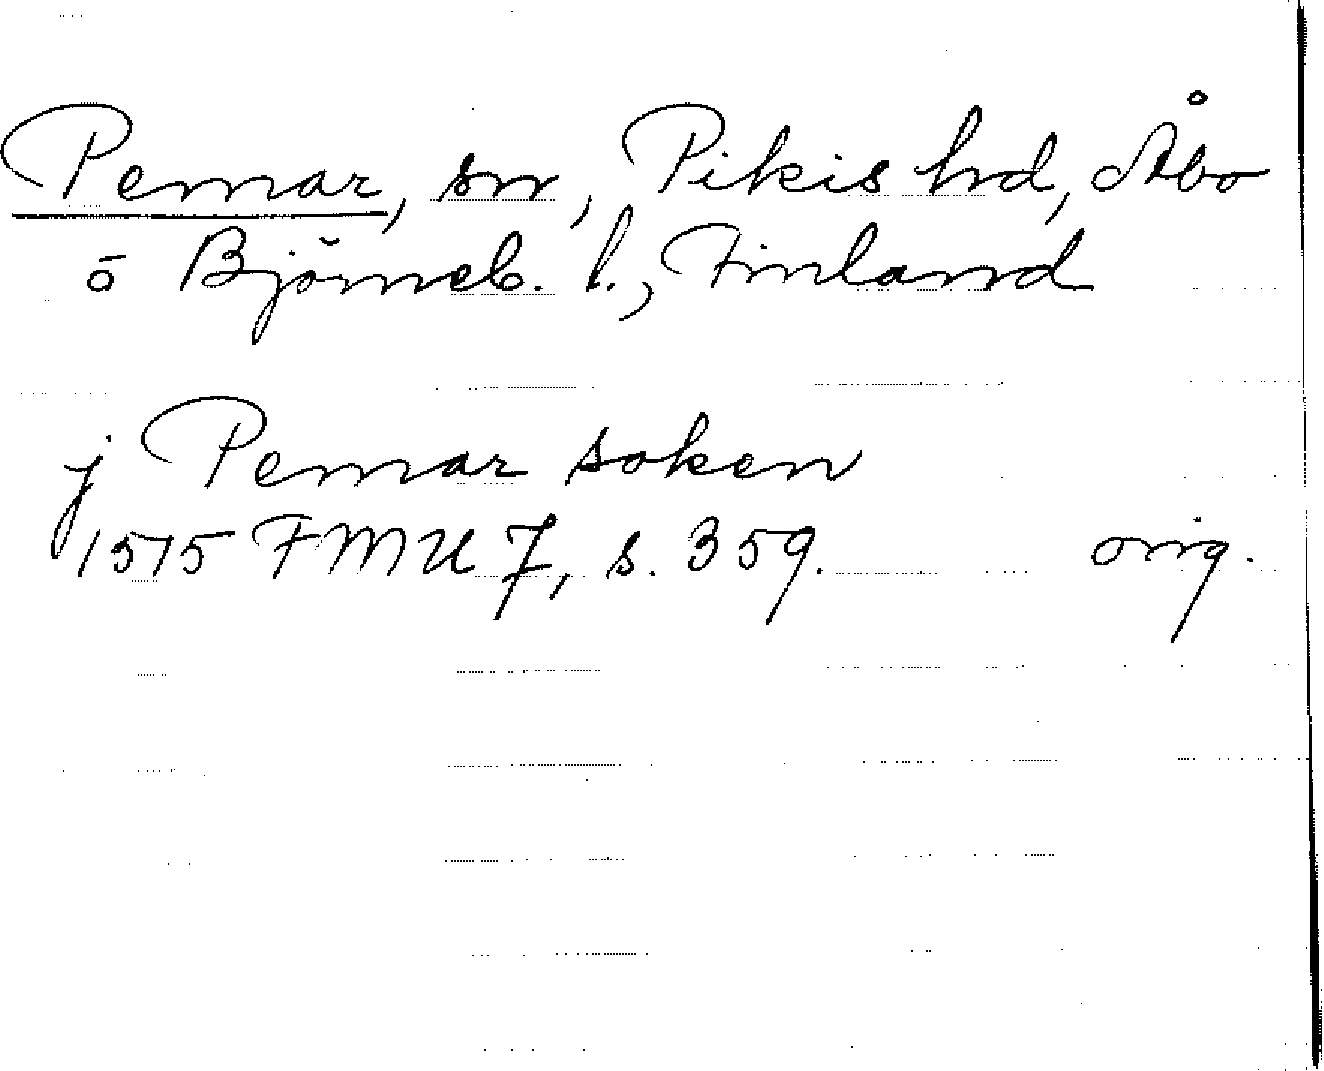 Pemar, sn, Pikis hd, Åbo
o Björneb. l., Finland
j Pemar soken
1515 FMU 7, s. 359. orig.